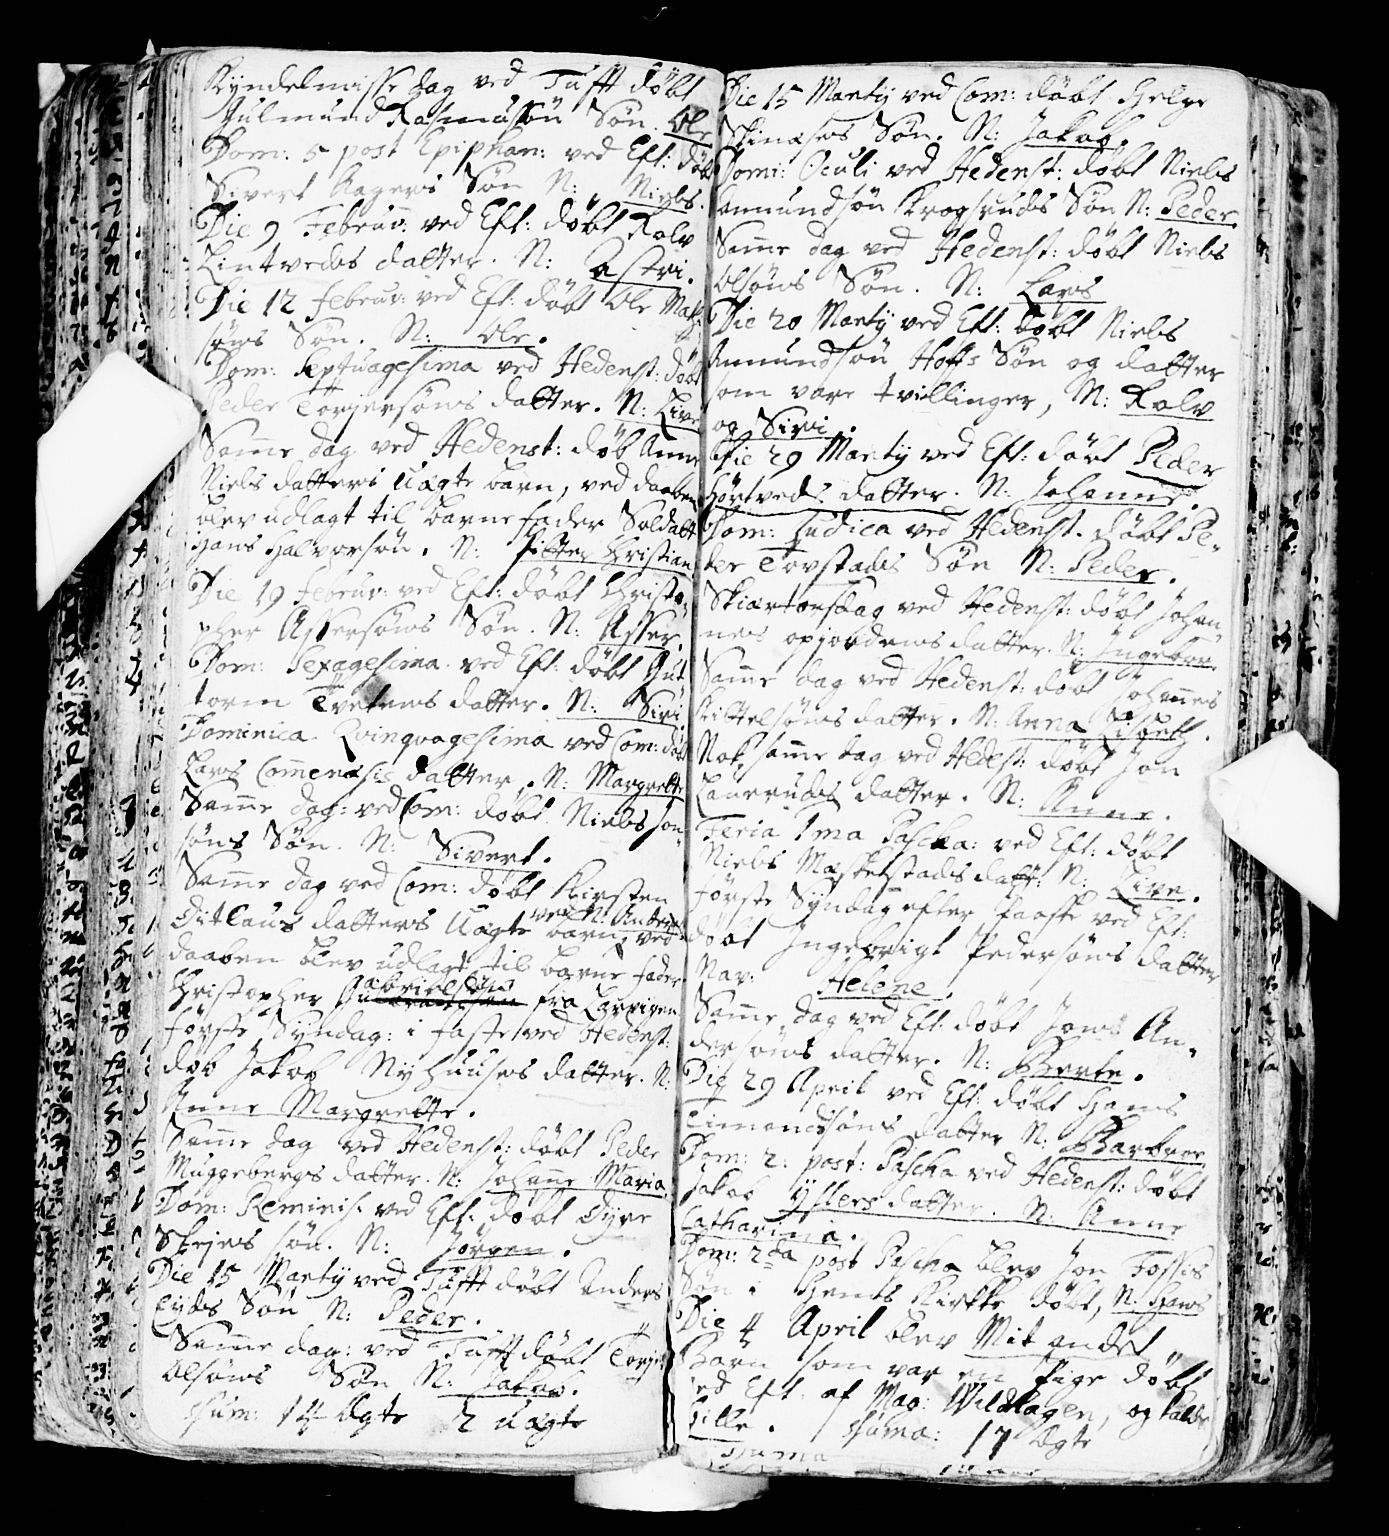 Kyndelmisse dag ved Tufft döbt
Gulmund Rasmusön Sön. Ole
Dom: 5 post Epiphan: ved Eft: döbt
Sivert Hagens Sön N: Niels.
Die 9 Februar: ved Eft: döbt Rolv
Lintvedts datter. N: Astri.
Die 12 februar: ved Eft: döbt Ole Mats
söns Sön. N: Ole.
Dom: Septuagesima ved Hedenst: döbt
Peder Torjersöns datter. N: Live
Samme dag ved Hedenst: döb Anne
Niels datters uægte barn, ved daaben
blev udlagt til barne fader Soldatt
Hans Halvorsön. N: Christian
Die 19 Februar: ved Eft: döbt Christo-
pher Assersöns Sön. N: Asser.
Dom: Sexagesima ved Eft: döbt Gut
torm Tvetens datter. N: Siri.
Dominica Qvinqvagesima ved Com: döbt
Lars datter. N: Margrette
Samme dag: ved Com: döbt Niels Jon-
söns Sön. N: Sivert.
Samme dag ved Com: döbt Kirsten
ved N: Anders
Ditlaus datters Uægte barn, ved
daaben blev udlagt til barne fader
abrielsöns
Christopher fra Larvigen
förste Syndag: i faste ved Hedenst:
döb Jakob Nyhuuses datter. N:
Anne Margrette.
Samme dag ved Hedenst: döbt Peder
Muggebergs datter. N: Johanne Maria.
Dom: Reminis: ved Eft: döbt Gyre
sön. N: Jörgen.
Die 15 Martij ved Tufft döbt Anders
Eyds Sön N: Peder.
Samme dag: ved Tufft döbt Torje
Olsöns Sön N: Jakob.
Sum: 14 Ægte 2 uægte
Die 15 Martij ved Com: döbt Helge
Sön. N: Jakob.
Domi: Oculi ved Hedenst: döbt Niels
Amundsön Krogsruds Sön N: Peder
Samme dag ved Hedenst: döbt Niels
Olsöns Sön. N: Lars
Die 20 Martij ved Eft: döbt Niels
Amundsön Hoffs Sön og datter
som vare tvillinger, N: Rolv
og Siri.
Die 29 Martij ved Eft: döbt Peder
Hörtveds datter. N: Johanne.
Dom: Judica ved Hedenst. döbt Pe-
der Torstads Sön N: Peder.
Skiærtorsdag ved Hedenst: döbt Johan-
nes opjordens datter. N: Ingebor.
Samme dag ved Hedenst: döbt Johannes
Kittelsöns datter. N: Anna Lisbett.
Nok samme dag ved Hedest: döbt Jon
Laueruds datter. N: Anne.
Feria 1ma Pascha: ved Eft: döbt
Niels datt: N: Live.
förste Syndag efter Paaske ved Eft:
döbt Ingebrigt Pedersöns datter
Nav: Helene.
Samme dag ved Eft: döbt Jons An-
dersöns datter. N: Berte.
Die 29 April ved Eft: döbt Hans
Simondsöns datter N: Barbroe
Dom: 2: post: Pascha ved Hedenst: döbt
Jakob Yslers datter. N: Anne
Catharina.
Dom: 2da post Pascha blev Jon Fossis
Sön. Hems Kirkke döbt, N: Hans
Die 4 April blev Mit andet
Barn som var en Pige döbt
ved Eft: af Mag: Wildhagen, og kaldt
Sille. Suma: 17 Ægte